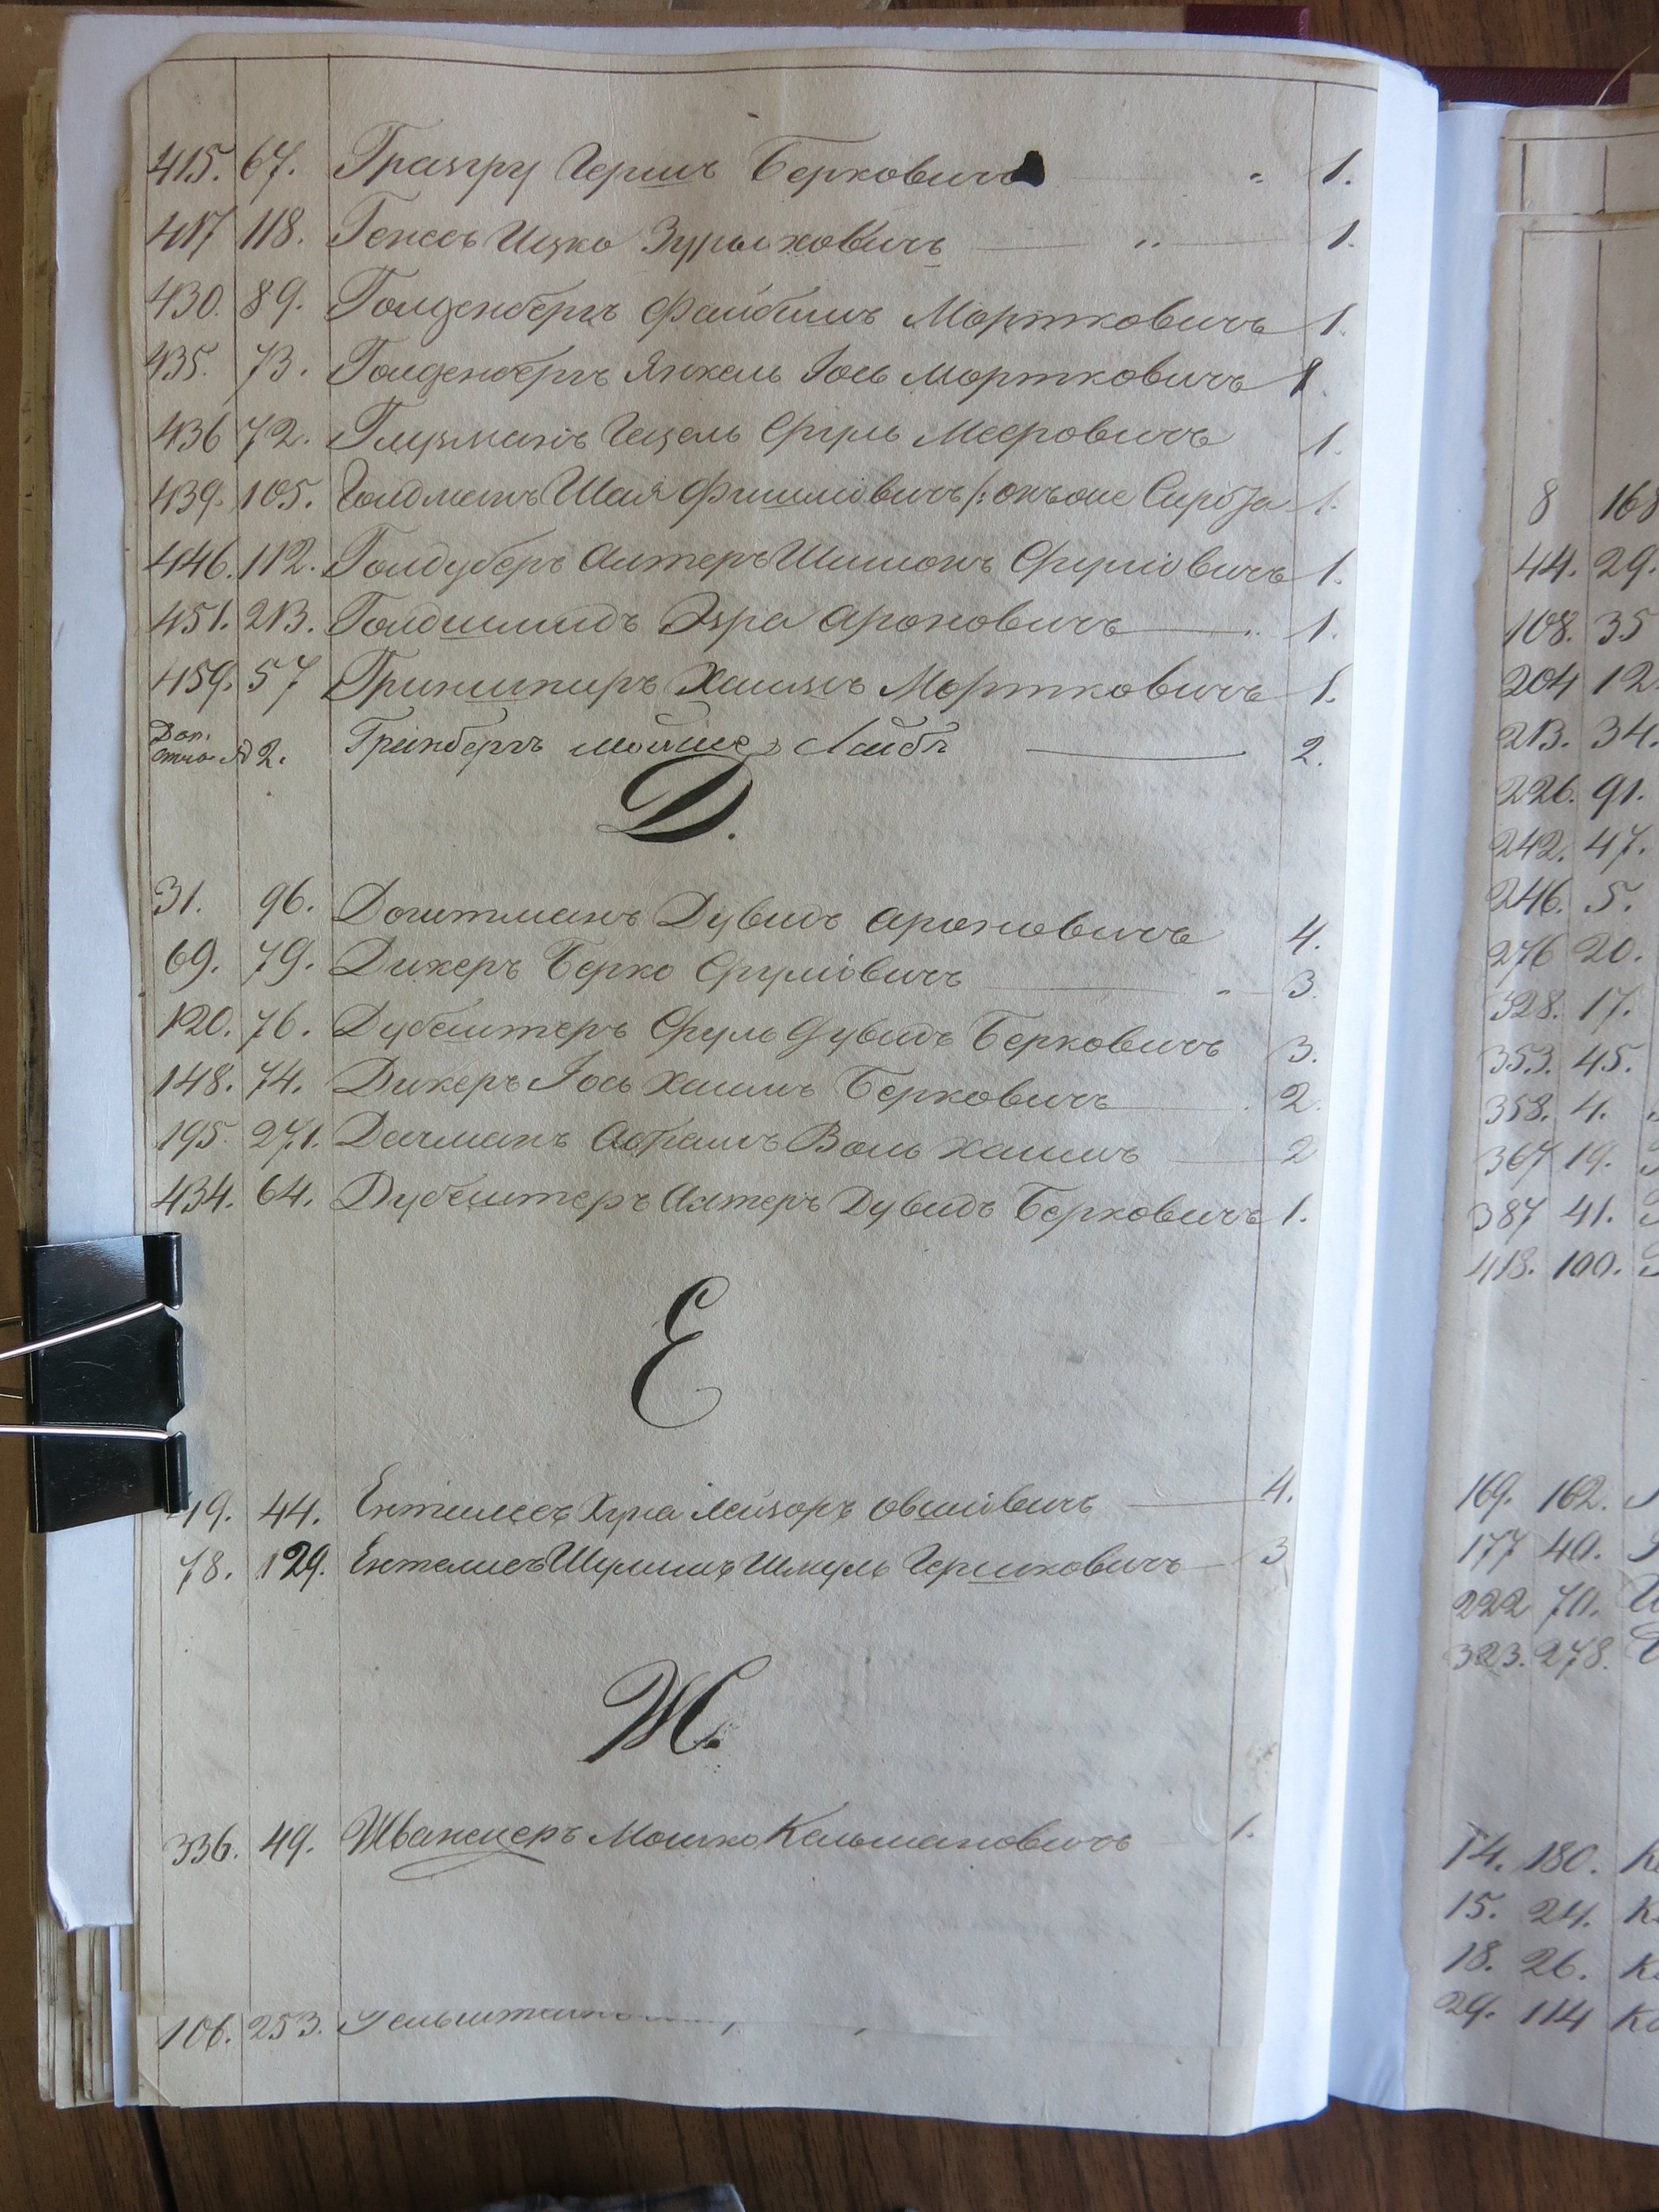 415. 67. Гразгру Гершъ Берковичъ " 1.
417 118. Генесъ Ицко Зурыховичъ " 1.
430. 89. Голденбергъ Файбишъ Мортковичъ 1.
435. 73. Голденбергъ Янкель Іось Мортковичъ 1.
436 72. Глузманъ Гецель Сруль Мееровичъ 1.
439. 105. Голдманъ Шая Фишліовичъ 1.
446. 112. Голдуберъ Алтеръ Шимонъ Сруліовичъ 1.
451. 213. Голдшмидъ Эзра Ароновичъ 1.
459. 57 Гриншпиръ Хаимъ Мортковичъ 1.
Доп.
№ 2. Гринбергъ Мойше Лейбъ 2.
Д.
31. 96. Дойтманъ Дувидъ Ароновичъ 4.
69. 79. Дикеръ Берко Сруліовичъ 3.
120. 76. Дубештеръ Сруль Дувидъ Берковичъ 3.
148. 74. Дикеръ Іось Хаимъ Берковичъ 2.
195. 271. Дачманъ Абрамъ Воль Хаимъ 2
434. 64. Дубештеръ Алтеръ Дувидъ Берковичъ 1.
Е
19. 44. Ентелесъ Хуна Лейзоръ Овшіовичъ 4.
78. 129. Ентелисъ Шулимъ Шмуль Гершковичъ 3
Ж.
336. 49. Жванецеръ Мошко Кельмановичъ 1.
106. 253.
8 168
44. 29.
108. 35
204 12
213. 34.
226. 91.
242. 47.
246. 5.
276 20.
328. 17.
353. 45.
358. 4.
367 19.
387 41.
418. 100.
169. 162.
177 40.
222 70.
323. 278.
14. 180.
15. 24.
18. 26.
29. 114